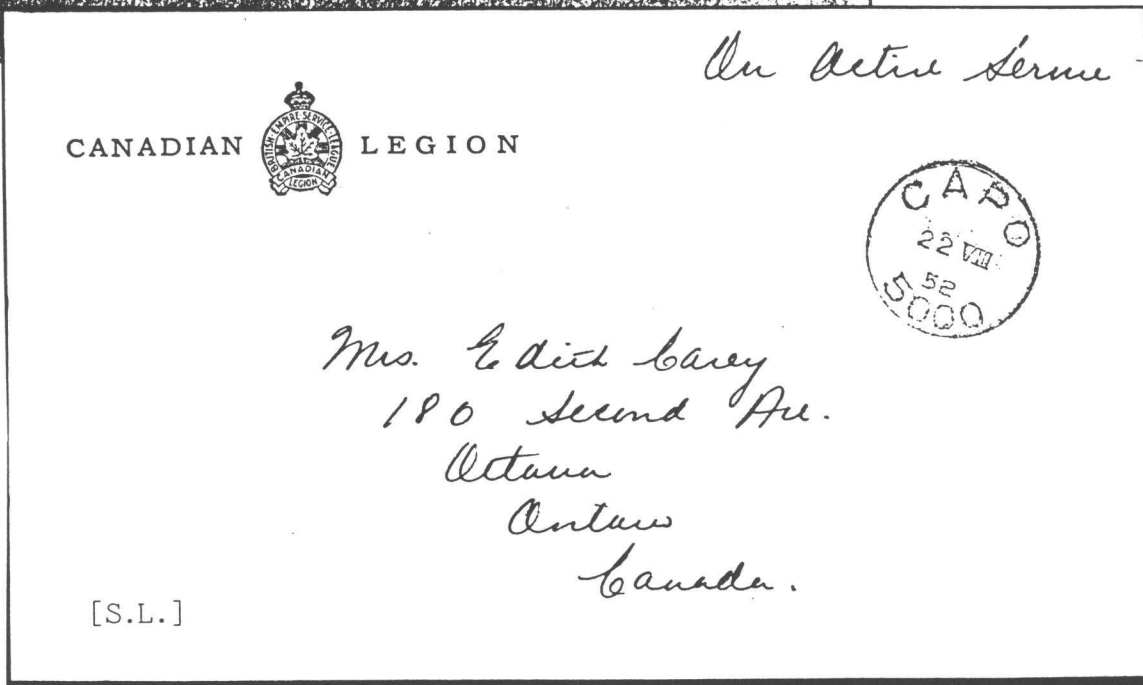 On Active Service
CANADIAN LEGION
BRITISH EMPIRE SERVICE LEAGUE
CANADIAN
LEGION
CAPO
22 VIII
52
5000
Mrs. Edith Carey
180 Second Ave.
Ottawa
Ontario
Canada.
[S.L.]